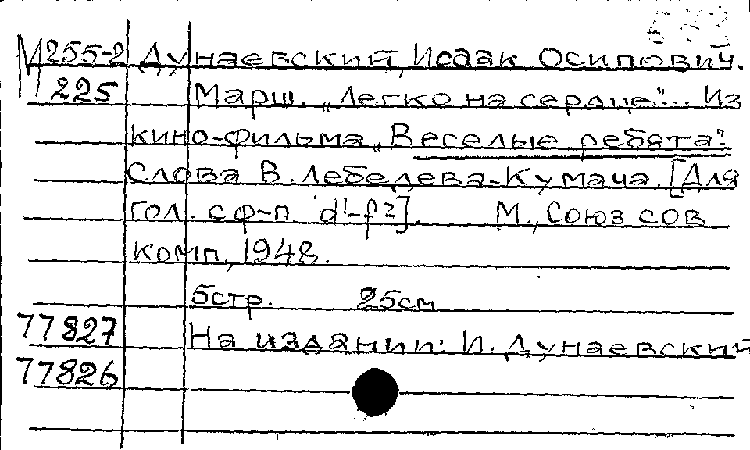 М255-2 Дунаевский, Исаак Осипович.
225 Марш. „Легко на сердце"... Из
кино-фильма „Веселые ребята".
Слова В. Лебедева-Кумача. [Для
гол. с ф-п d¹-f²]. М., Союз сов
комп., 1948.
5стр. 25см
77827 На издании: И. Дунаевский
77826